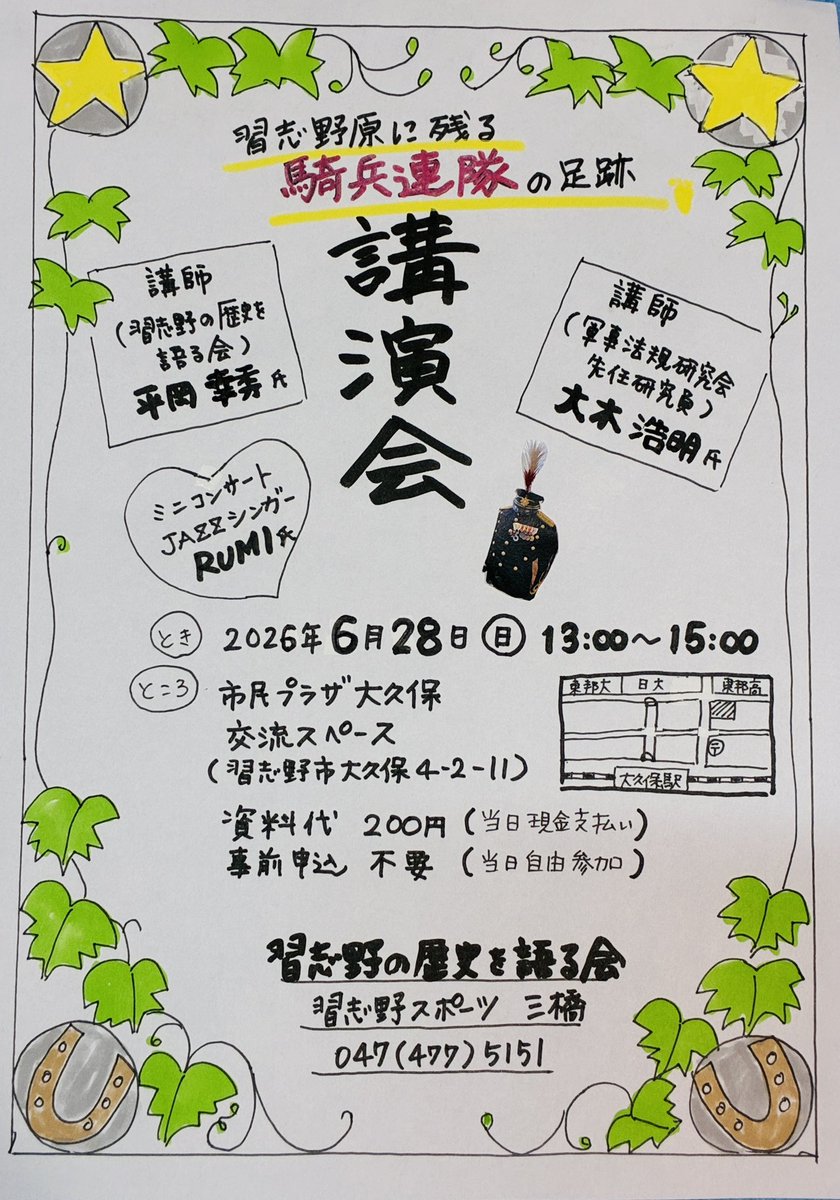 習志野原に残る
騎兵連隊の足跡
講演会
講師
(習志野の歴史を
語る会)
平岡 幸秀氏
講師
(軍事法規研究会
先任研究員)
大木 浩明氏
ミニコンサート
JAZZシンガー
RUMI氏
とき 2026年6月28日(日) 13:00〜15:00
ところ 市民プラザ大久保
交流スペース
(習志野市大久保4-2-11)
東邦大 日大 東邦高
〒
大久保駅
資料代 200円(当日現金支払い)
事前申込 不要 (当日自由参加)
習志野の歴史を語る会
習志野スポーツ 三橋
047(477)5151